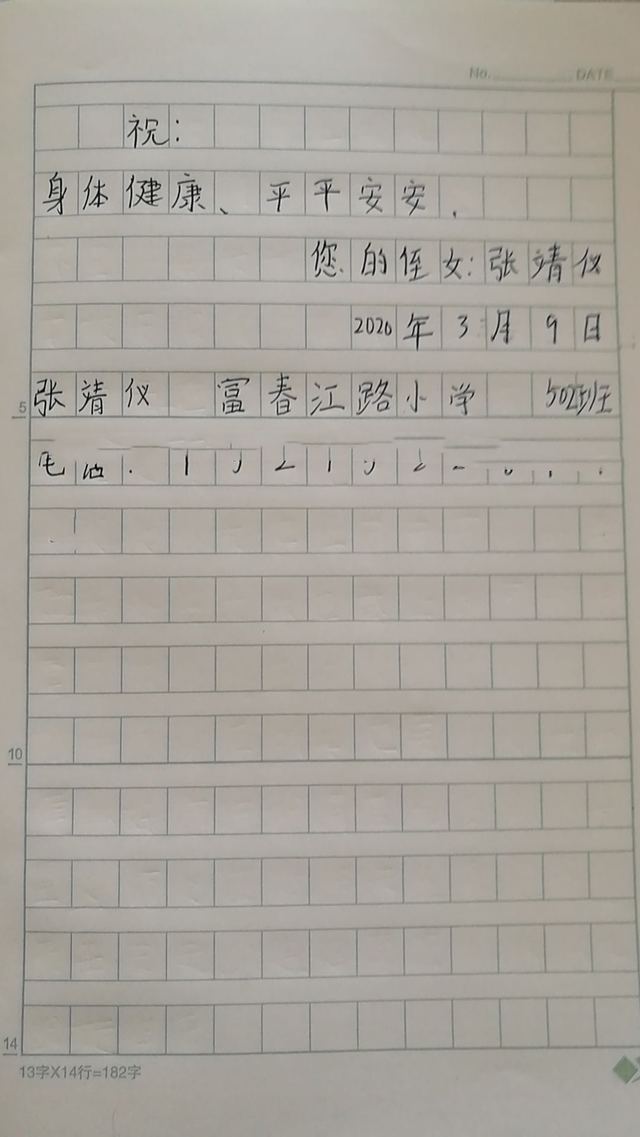 No. DATE
祝：
身体健康、平平安安.
您的侄女：张靖仪
2020年3月9日
5
张靖仪 富春江路小学 502班
10
14
13字X14行=182字